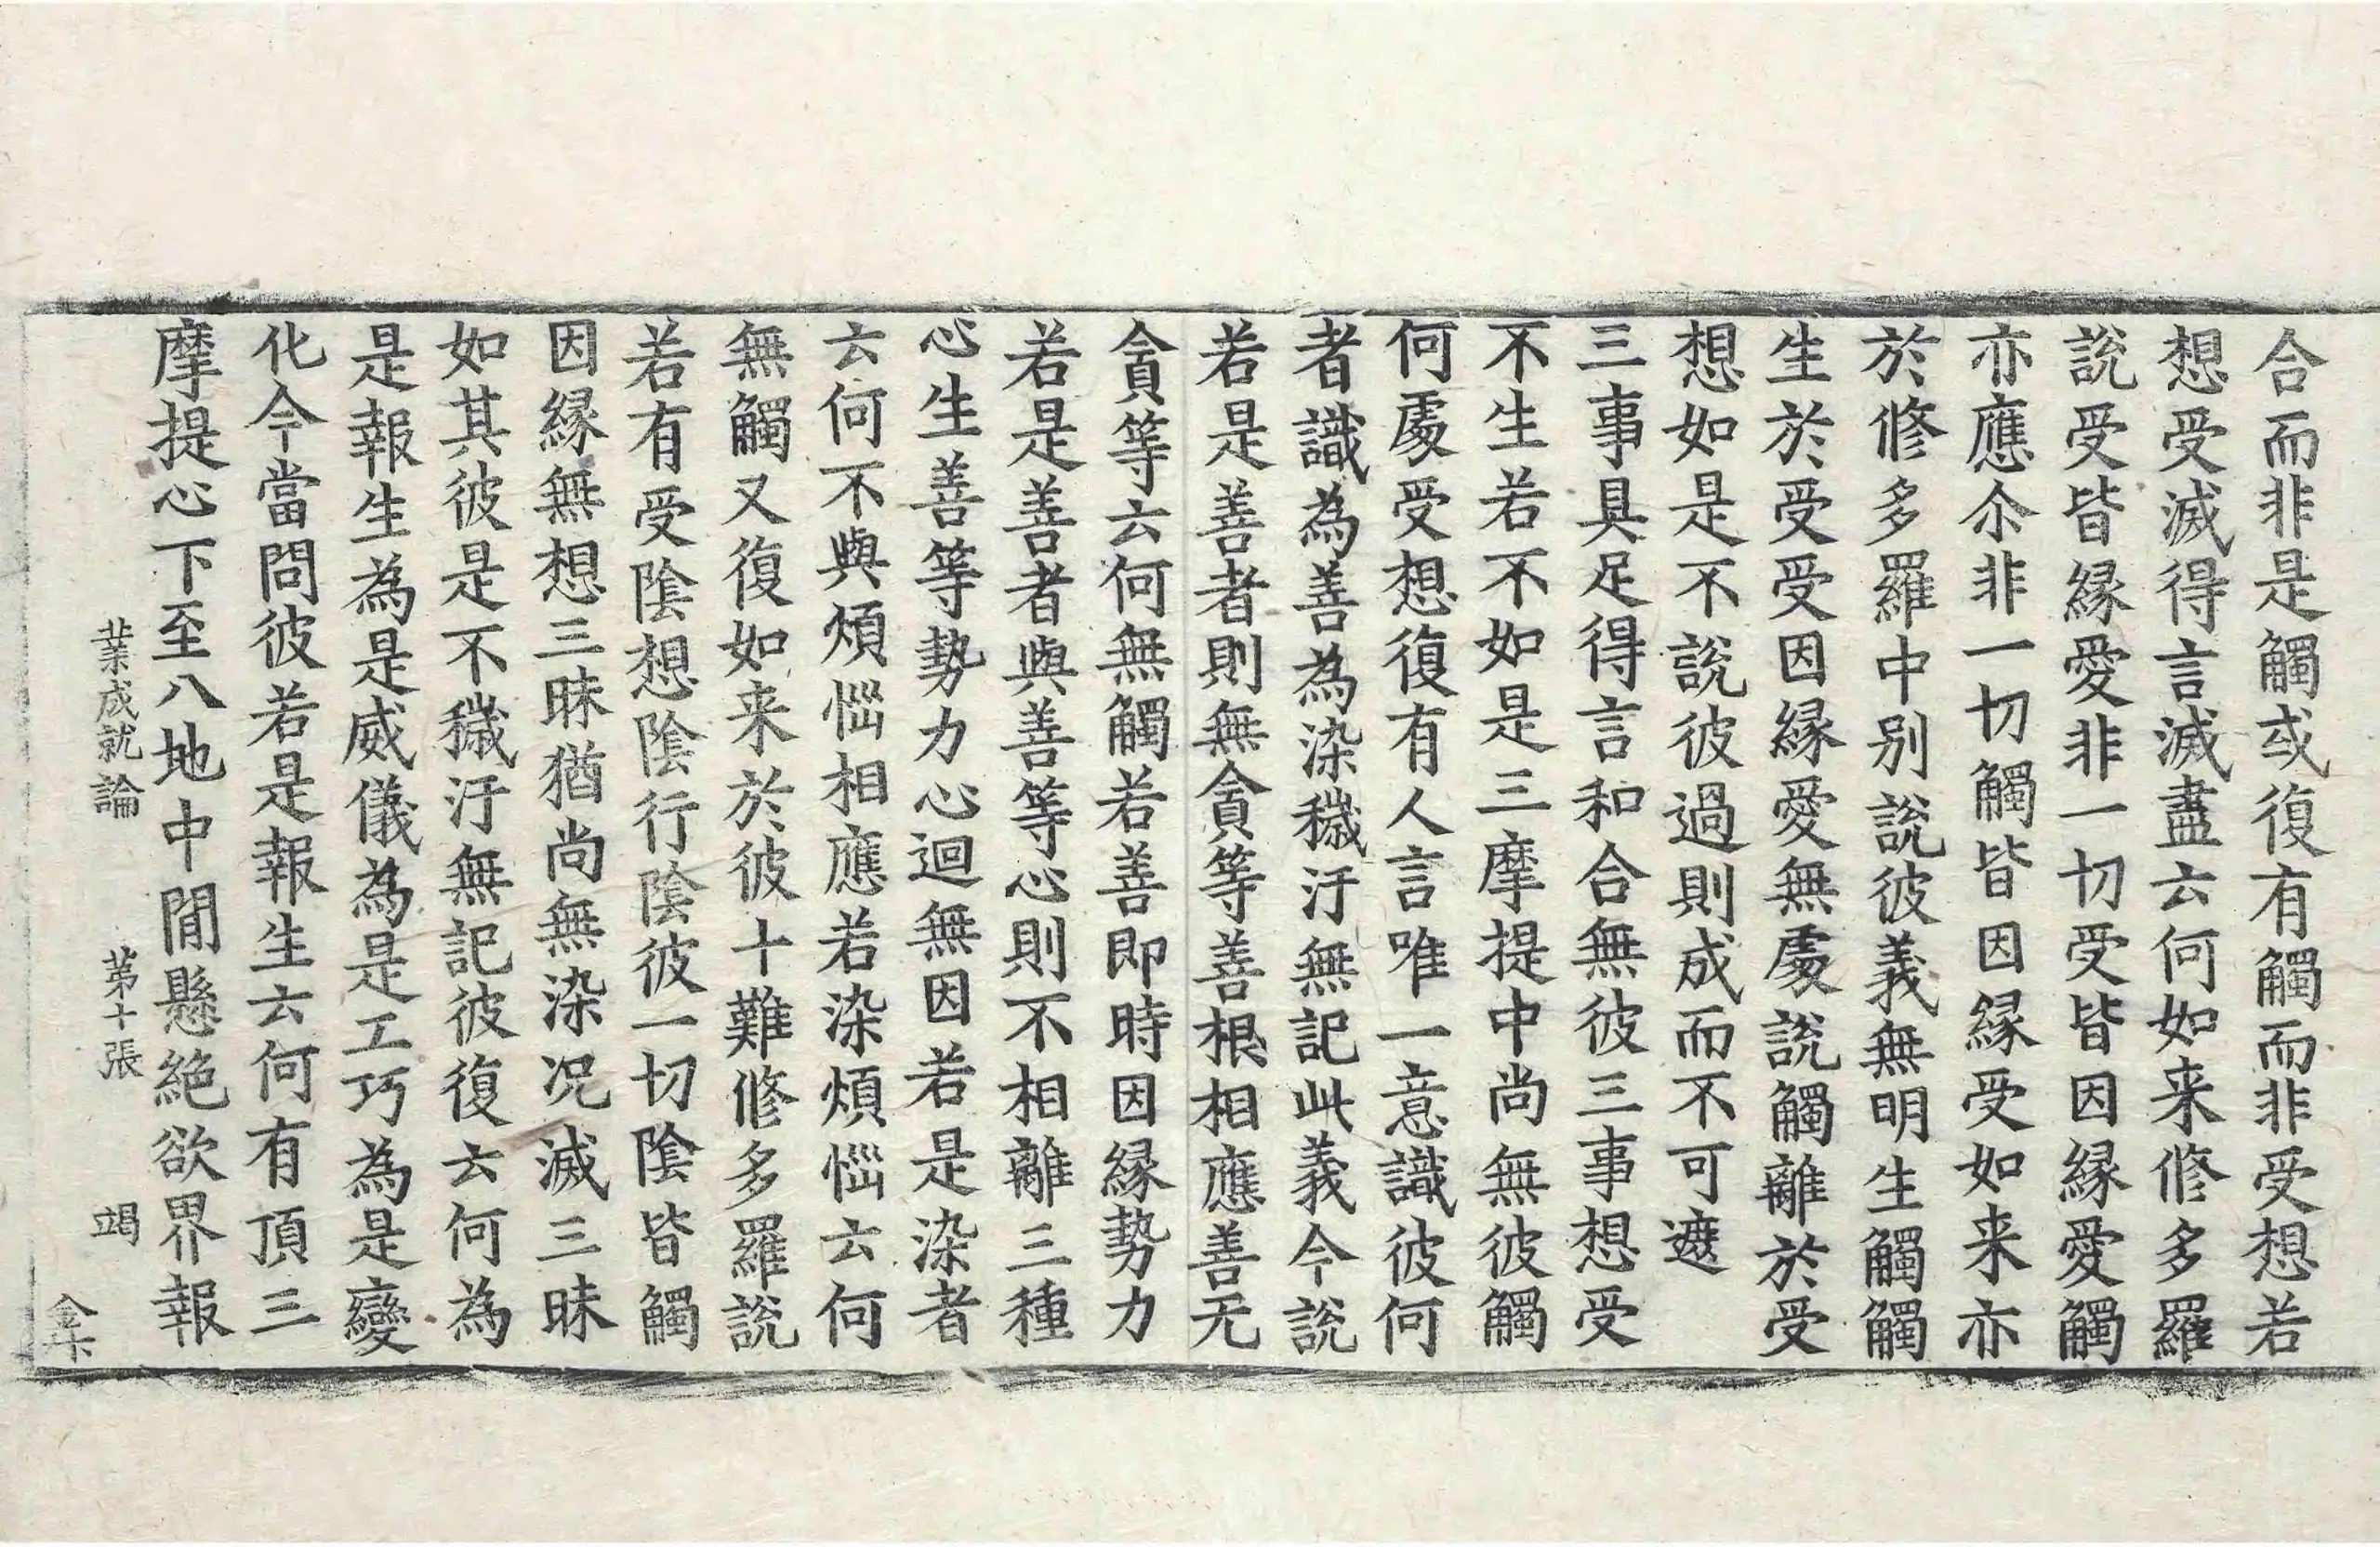 合而非是觸或復有觸而非受想若
想受滅得言滅盡云何如来修多羅
說受皆縁愛非一切受皆因縁愛觸
亦應尒非一切觸皆因縁受如来亦
於修多羅中别說彼義無明生觸觸
生於受受因縁愛無處說觸離於受
想如是不說彼過則成而不可遮
三事具足得言和合無彼三事想受
不生若不如是三摩提中尚無彼觸
何處受想復有人言唯一意識彼何
者識為善為染穢汙無記此義今說
若是善者則無貪等善根相應善无
貪等云何無觸若善即時因縁勢力
若是善者與善等心則不相離三種
心生善等勢力心迴無因若是染者
云何不與煩惱相應若染煩惱云何
無觸又復如来於彼十難修多羅說
若有受陰想陰行陰彼一切陰皆觸
因縁無想三昧猶尚無染况滅三昧
如其彼是不穢汙無記彼復云何為
是報生為是威儀為是工巧為是變
化今當問彼若是報生云何有頂三
摩提心下至八地中間懸絕欲界報
業成就論 第十張 竭